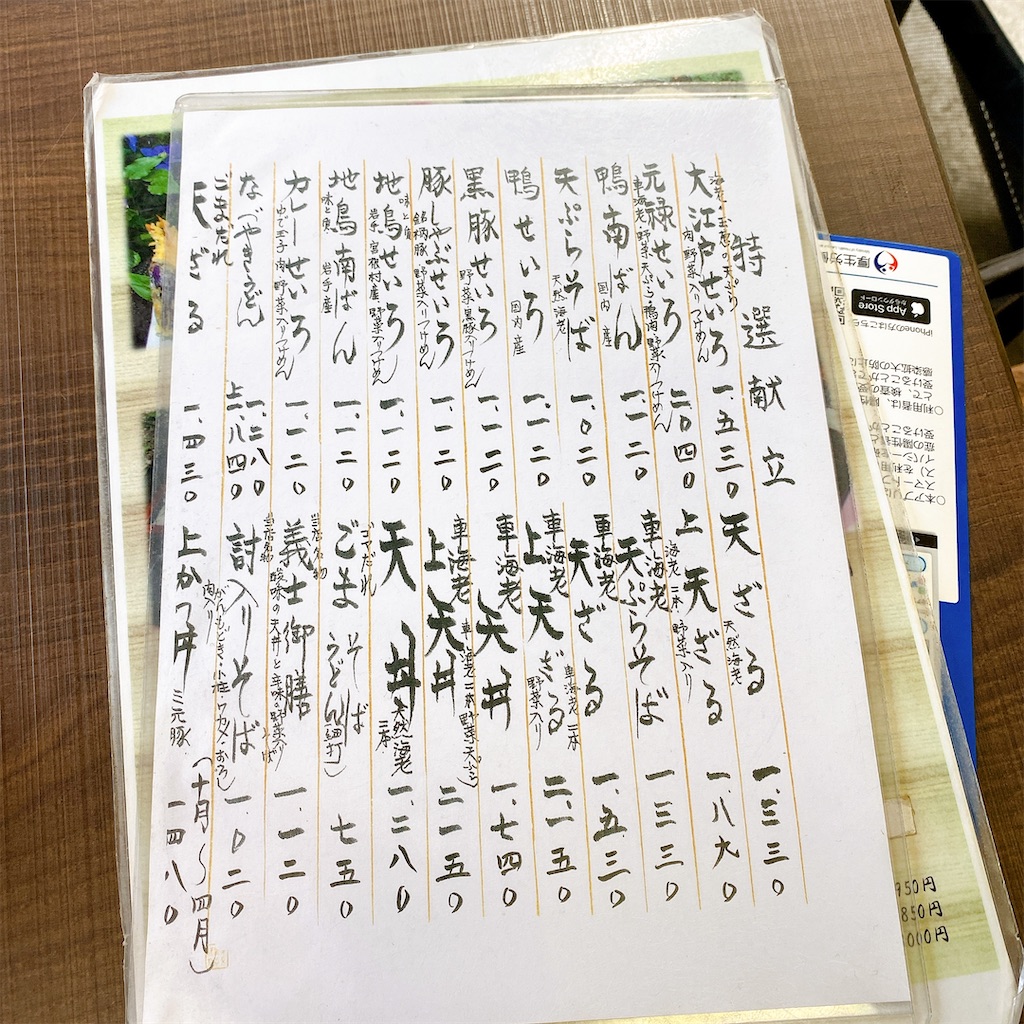 特選献立
海老と玉葱の天ぷら
大江戸せいろ 一、五三〇
肉 野菜入りつけめん
元禄せいろ 二、〇四〇
車海老 野菜天ぷら 鴨肉 野菜入りつけめん
鴨南ばん 一、一二〇
国内産
天ぷらそば 一、〇二〇
天然海老
鴨せいろ 一、一二〇
国内産
黒豚せいろ 一、一二〇
野菜 黒豚入りつけめん
豚しゃぶせいろ 一、一二〇
銘柄豚 野菜入りつけめん
味と魚
地鳥せいろ 一、一二〇
岩手 宮根村産 野菜入りつけめん
地鳥南ばん 一、一二〇
味と魚 岩手産
カレーせいろ 一、一二〇
ゆで玉子 肉 野菜入りつけめん
なべやきうどん 一、二八〇
上 一、八四〇
ごまだれ
天ざる 一、四三〇
天ざる 一、三三〇
天然海老
上天ざる 一、八九〇
海老二本 野菜入り
車海老
天ぷらそば 一三三〇
車海老
天ざる 一、五三〇
車海老二本
車海老
上天ざる 二、一五〇
野菜入り
車海老
天丼 一、七四〇
車海老
上天丼 二一五〇
(車海老二本 野菜天ぷら)
天丼 一、二八〇
天然海老二本
ゴマだれ
ごまそば 七五〇
うどん(細打)
当店名物
義士御膳 一、一二〇
酸味の天丼と辛味の野菜入りそば
当店名物
討入りそば 一、〇二〇
肉入り
(がんもどき・小柱・ワカメ・おろし)
上かつ丼 一四八〇
三元豚
(十月〜四月)
厚生労働
App Store
からダウンロード
iPhoneの方はこちら
950円
850円
000円